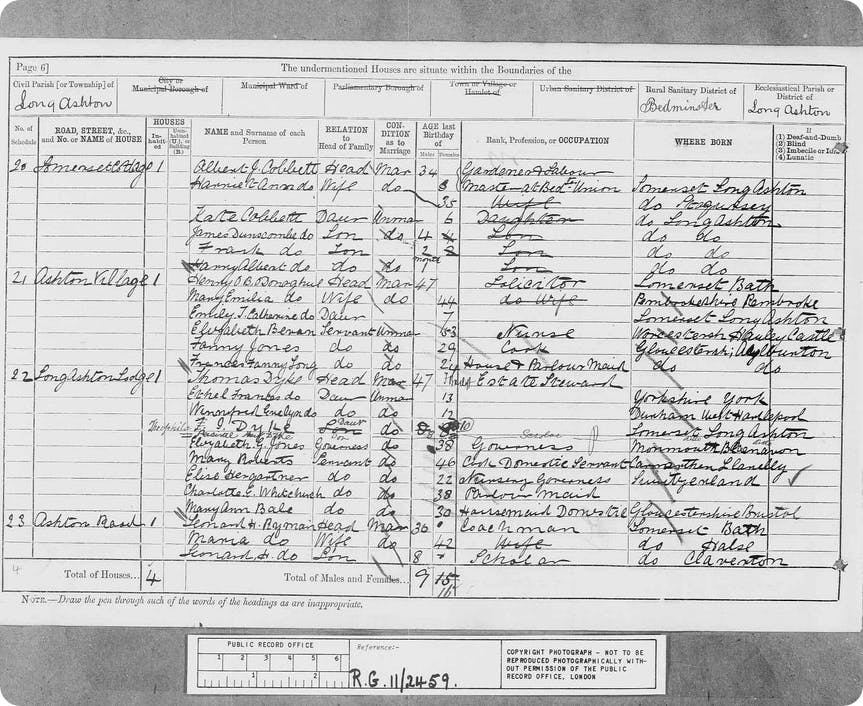 Page 6]
The undermentioned Houses are situate within the Boundaries of the
Civil Parish [or Township] of City or Municipal Borough of Municipal Ward of Parliamentary Borough of Town or Village or Hamlet of Urban Sanitary District of Rural Sanitary District of Ecclesiastical Parish or District of
Long Ashton Bedminster Long Ashton
No. of Schedule ROAD, STREET, &c., and No. or NAME of HOUSE HOUSES Inhabited Uninhabited (U.), or Building (B.) NAME and Surname of each Person RELATION to Head of Family CONDITION as to Marriage AGE last Birthday of Males Females Rank, Profession, or OCCUPATION WHERE BORN If (1) Deaf-and-Dumb (2) Blind (3) Imbecile or Idiot (4) Lunatic
20 Somerset Cottage 1 Albert J. Cobbett Head Mar 34 Gardener &
Harriet Ann do Wife do at Bed Union Somerset Long Ashton
35 Wife do
Kate Cobbett Daur Unmar 6 Daughter do Long Ashton
James Dunscombe do Son do 4 Son do do
Frank do Son 2 Son do do
Harry Albert do do do 1 month Son do do
21 Ashton Village 1 Henry O'B. O'Donoghue Head Mar 47 Solicitor Somerset Bath
Mary Emilia do Wife do 44 do Wife Pembroke
Emily T. Catherine do Daur 7 Somerset Long Ashton
Elizabeth Bevan Servant Unmar 53 Nurse Hanley Castle
Fanny Jones do do 29 Cook
Frances Fanny Long do do 24 House & Parlour Maid do do
22 Long Ashton Lodge 1 Thomas Dyke Head Mar 47 Estate Steward
Ethel Frances do Daur Unmar 13 Yorkshire York
Winnifred Evelyn do do do 12 Durham West Hartlepool
Theophilus F. J. Dyke Son Daur do 10 Somerset Long Ashton
Scholar
Elizabeth G. Jones Governess do 38 Governess Monmouth Blaenavon
Mary Roberts Servant do 46 Cook Domestic Servant Carmarthen Llanelly
Elise Hergartner do do 22 Nursery Governess Switzerland
Charlotte E. Whitchurch do do 38 Parlour Maid
Mary Ann Bale do do 30 Housemaid Domestic Gloucestershire Bristol
23 Ashton Road 1 Leonard H. Ryman Head Mar 36 Coachman Somerset Bath
Maria do Wife do 42 Wife do Halse
Leonard H. do Son 8 Scholar do Claverton
4 Total of Houses... 4 Total of Males and Females... 9 15
16
NOTE.—Draw the pen through such of the words of the headings as are inappropriate.
PUBLIC RECORD OFFICE
1 2 3 4 5 6
1 2
Reference:-
R.G. 11/2459.
COPYRIGHT PHOTOGRAPH - NOT TO BE
REPRODUCED PHOTOGRAPHICALLY WITH-
OUT PERMISSION OF THE PUBLIC
RECORD OFFICE, LONDON